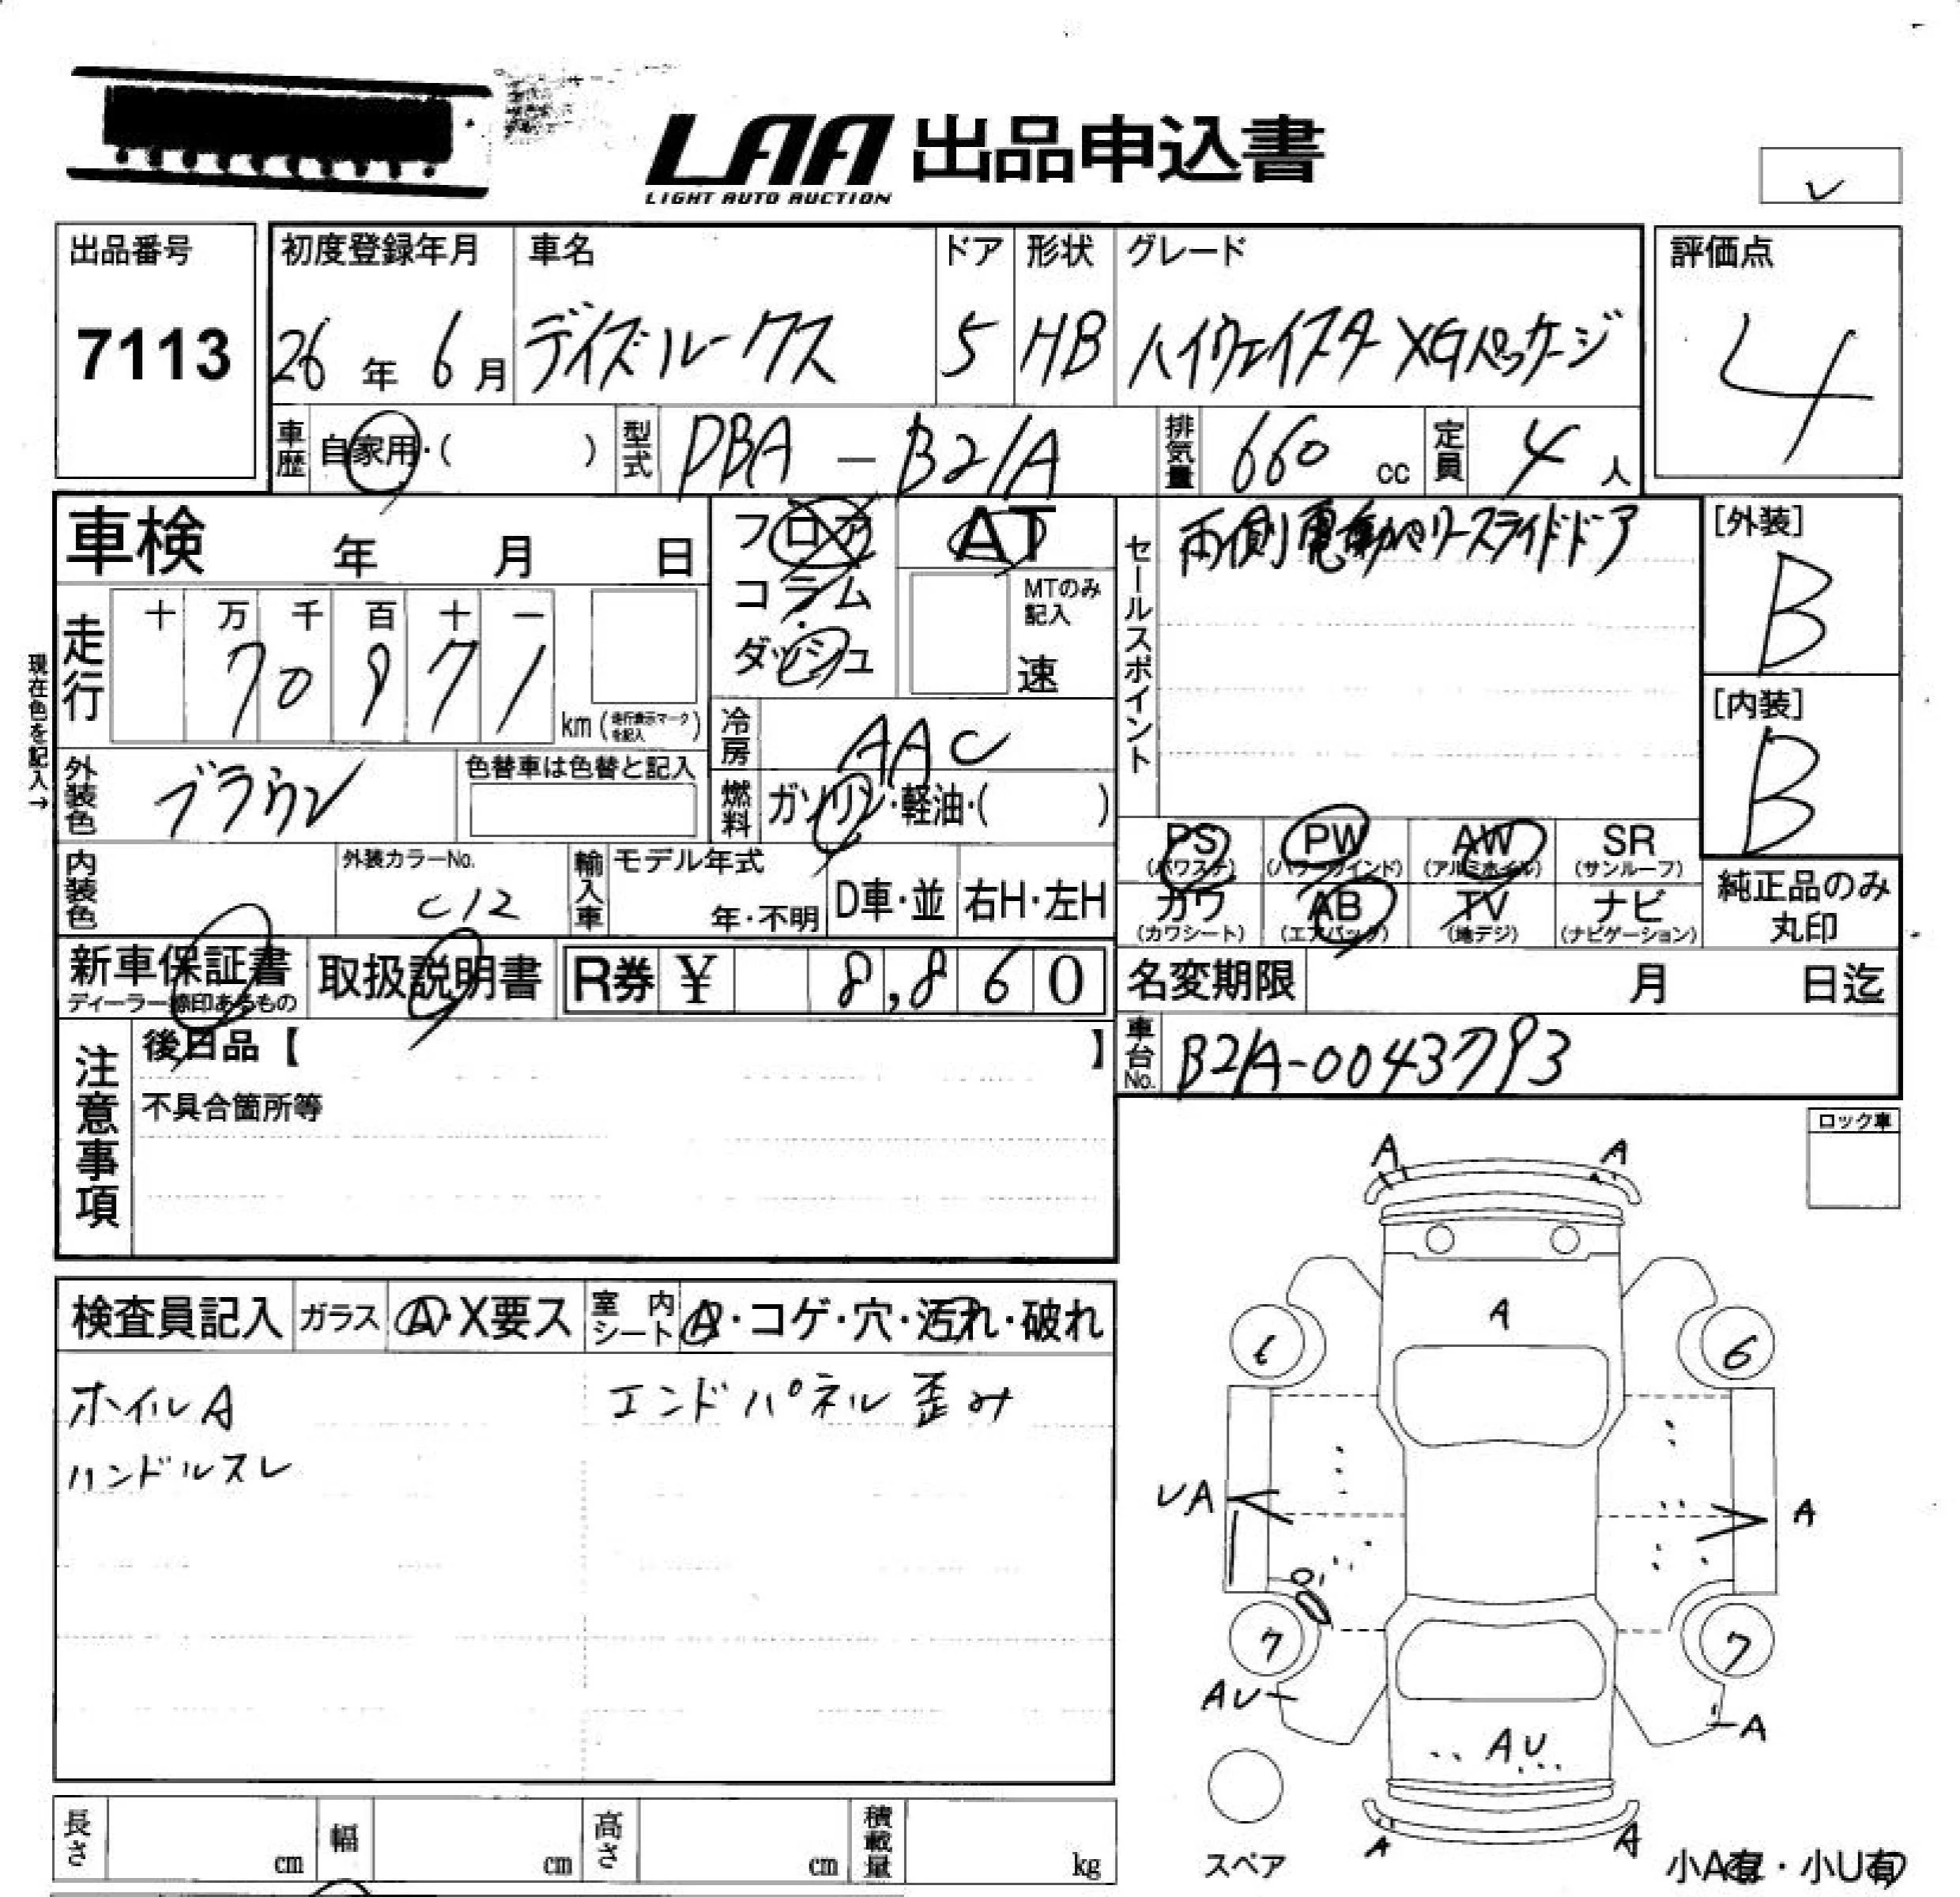 LAA 出品申込書
LIGHT AUTO AUCTION
出品番号
7113
初度登録年月 車名 ドア 形状 グレード
26年 6月 デイズルークス 5 HB ハイウェイスター XGパッケージ
評価点
4
車歴 自家用・( ) 型式 DBA - B21A 排気量 660 cc 定員 4 人
車検 年 月 日
フロア AT
コラム MTのみ記入
ダッシュ 速
セールスポイント 両側電動パワースライドドア
[外装]
B
[内装]
B
現在色を記入→
走行 十 万 千 百 十 一
70971 km (走行表示マークを記入)
冷房 AAC
燃料 ガソリン・軽油・( )
外装色 ブラウン 色替車は色替と記入
内装色 外装カラーNo. C12
輸入車 モデル年式 年・不明 D車・並 右H・左H
PS (パワステ) PW (パワーウインド) AW (アルミホイル) SR (サンルーフ)
カワ (カワシート) AB (エアバッグ) TV (地デジ) ナビ (ナビゲーション)
純正品のみ
丸印
新車保証書 取扱説明書 R券 ¥ 8,860
ディーラー捺印あるもの
名変期限 月 日迄
車台No. B21A-0043793
注意事項
後日品【 】
不具合箇所等
ロック車
検査員記入 ガラス A・X要ス 室内シート A・コゲ・穴・汚れ・破れ
ホイルA エンドパネル歪み
ハンドルスレ
A A
A
6 6
UA A
7 7
AU A
AU
A A
スペア
小A有・小U有
長さ cm 幅 cm 高さ cm 積載量 kg